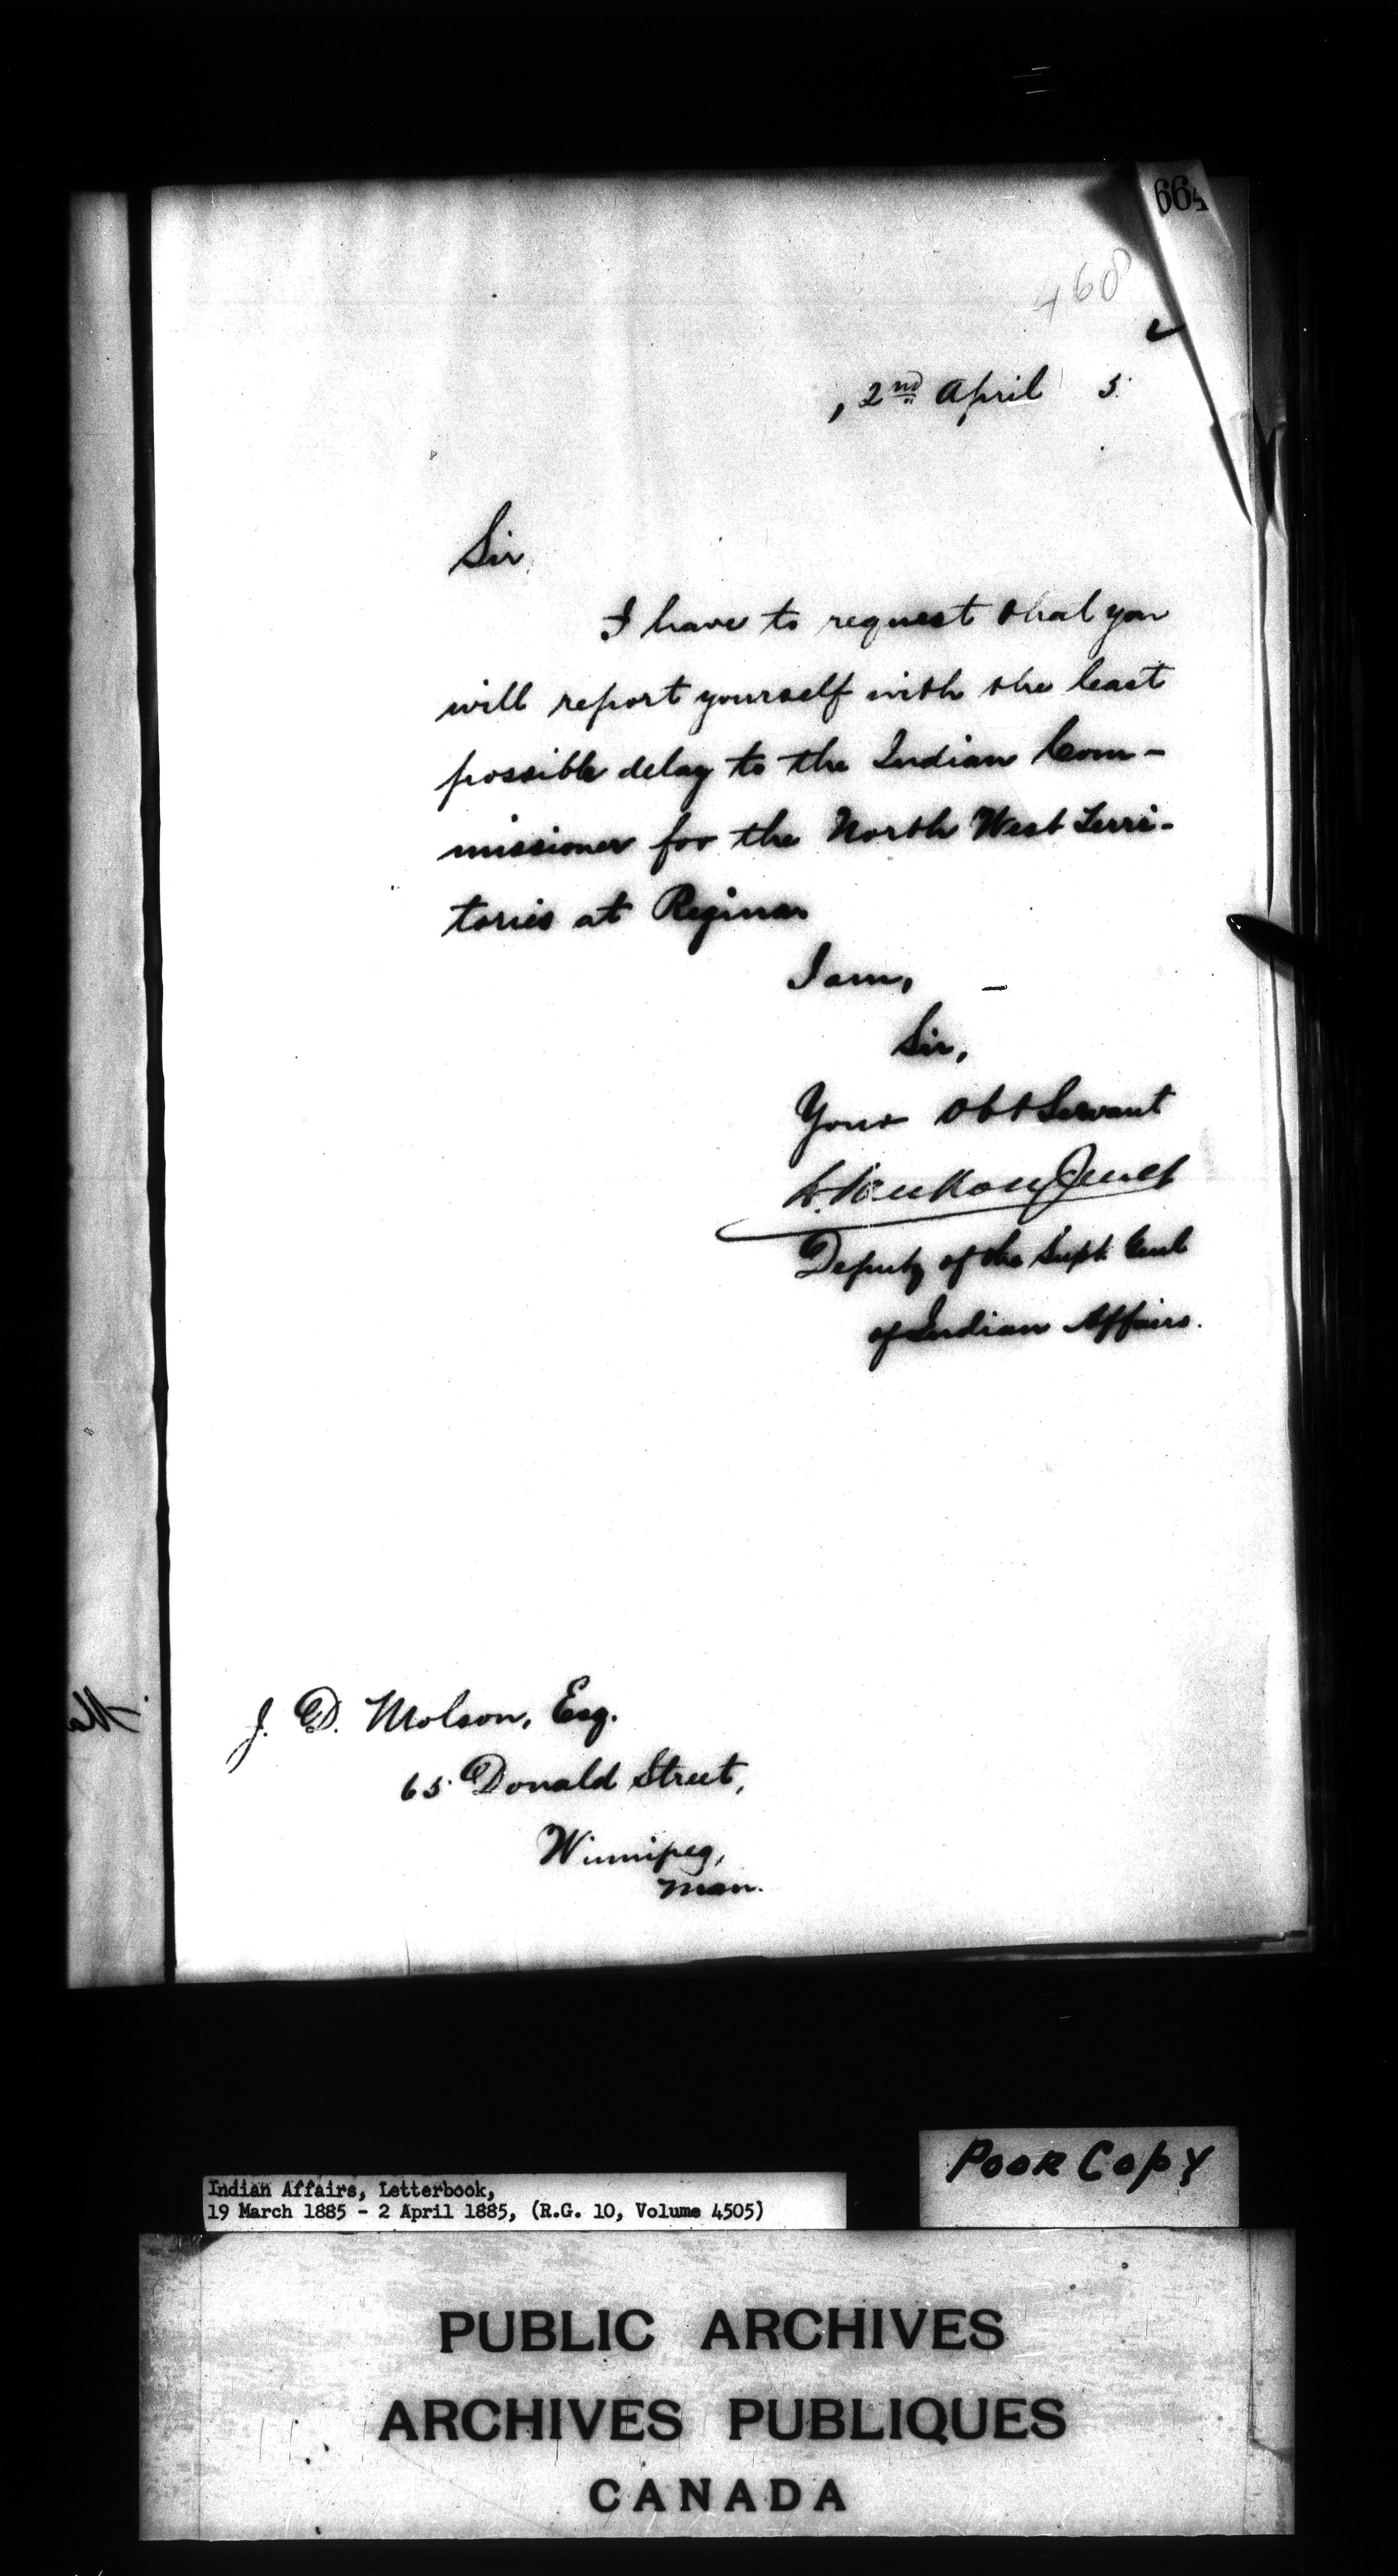 664
468
, 2nd April 5.
Sir,
I have to request that you
will report yourself with the least
possible delay to the Indian Com-
missioner for the North West Terri-
tories at Regina.
I am,
Sir,
Your Obt Servant
L. VanKoughnet
Deputy of the Supt. Genl
of Indian Affairs.
J. D. Molson, Esq.
65 Donald Street,
Winnipeg,
Man.
POOR COPY
Indian Affairs, Letterbook,
19 March 1885 - 2 April 1885, (R.G. 10, Volume 4505)
PUBLIC ARCHIVES
ARCHIVES PUBLIQUES
CANADA